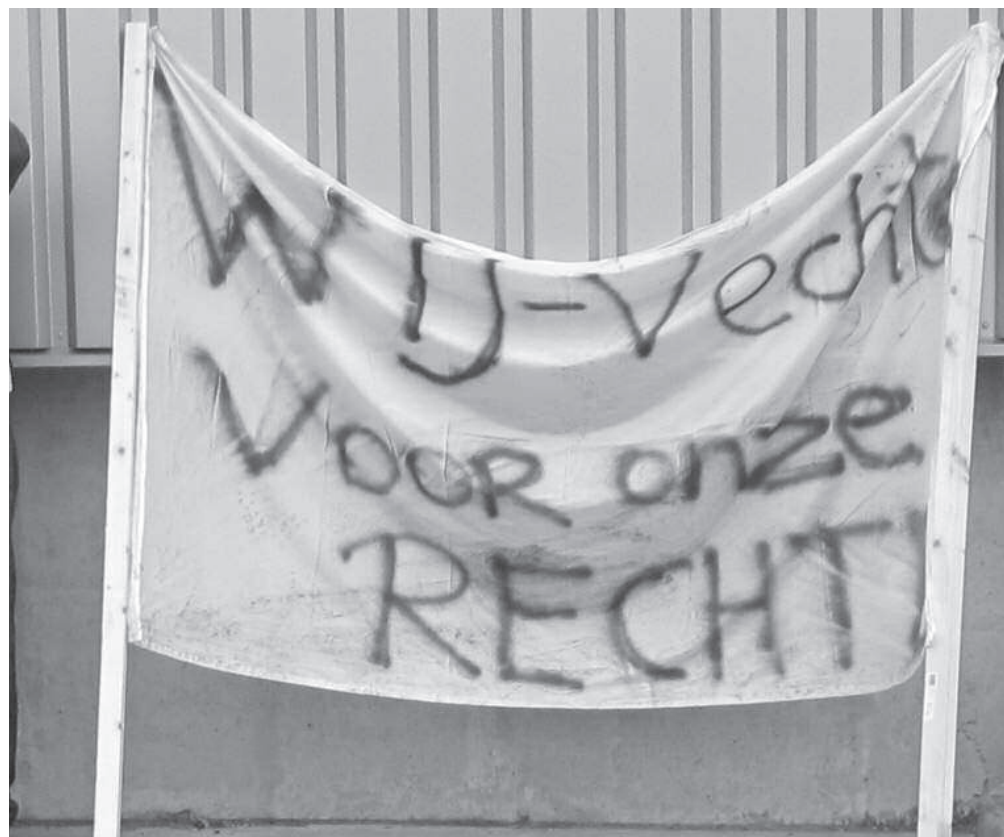 WIJ-Vecht
Voor onze
RECHT